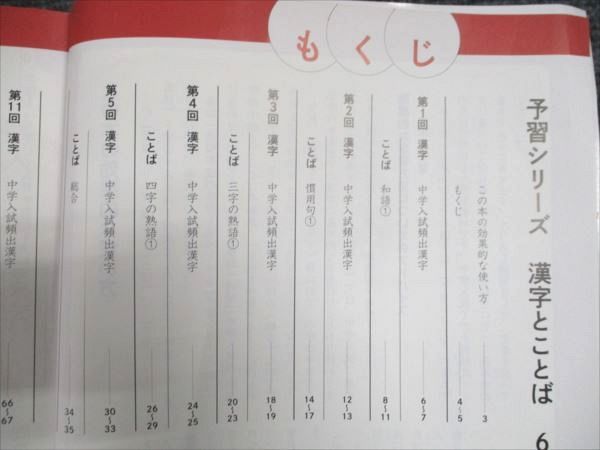 もくじ
予習シリーズ 漢字とことば 6
この本の効果的な使い方 3
もくじ 4〜5
第1回 漢字 中学入試頻出漢字 6〜7
ことば 和語① 8〜11
第2回 漢字 中学入試頻出漢字 12〜13
ことば 慣用句① 14〜17
第3回 漢字 中学入試頻出漢字 18〜19
ことば 三字の熟語① 20〜23
第4回 漢字 中学入試頻出漢字 24〜25
ことば 四字の熟語① 26〜29
第5回 漢字 中学入試頻出漢字 30〜33
ことば 総合 34〜35
第11回 漢字 中学入試頻出漢字 66〜67